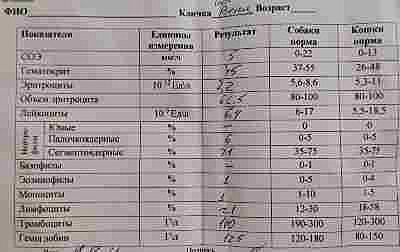 ФИО Кличка Возраст
Показатели Единицы измерения Результат Собаки норма Кошки норма
СОЭ мм/ч 5 0-22 0-13
Гематокрит % 35 37-55 26-48
Эритроциты Ед/л 5,6-8,6 5,3-11
Объем эритроцита 80-100 80-100
Лейкоциты Ед/л 6-17 5,5-18,5
Юные % – 0 0
Палочкоядерные % 6 0-5 0-5
Сегментоядерные % 71 35-75 35-75
Базофилы % – 0-1 0-1
Эозинофилы % 1 0-5 0-4
Моноциты % 1 1-10 1-5
Лимфоциты % 21 12-30 18-58
Тромбоциты Г/л 190-300 120-300
Гемоглобин Г/л 125 120-180 80-150